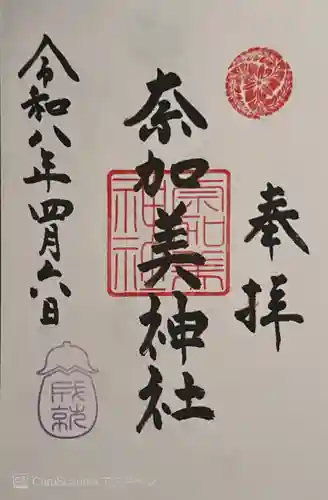 奉拝
奈加美神社
奈加美
神社
令和八年四月六日
成就
CamScanner